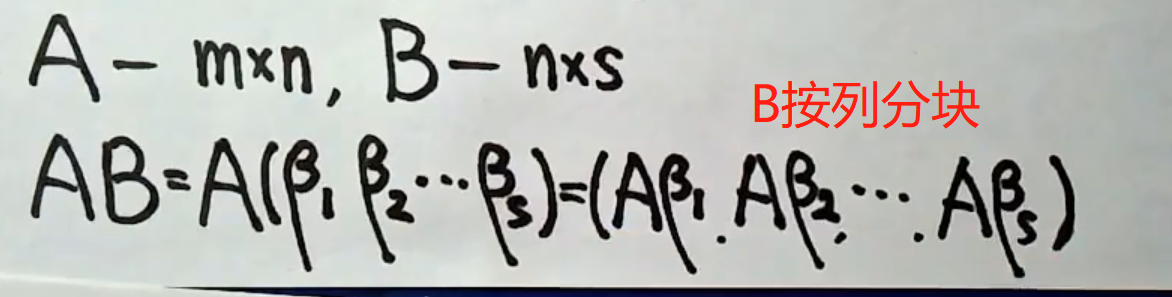 A — m×n, B — n×s
B按列分块
AB=A(β₁ β₂ ⋯ βₛ)=(Aβ₁. Aβ₂, ⋯. Aβₛ)